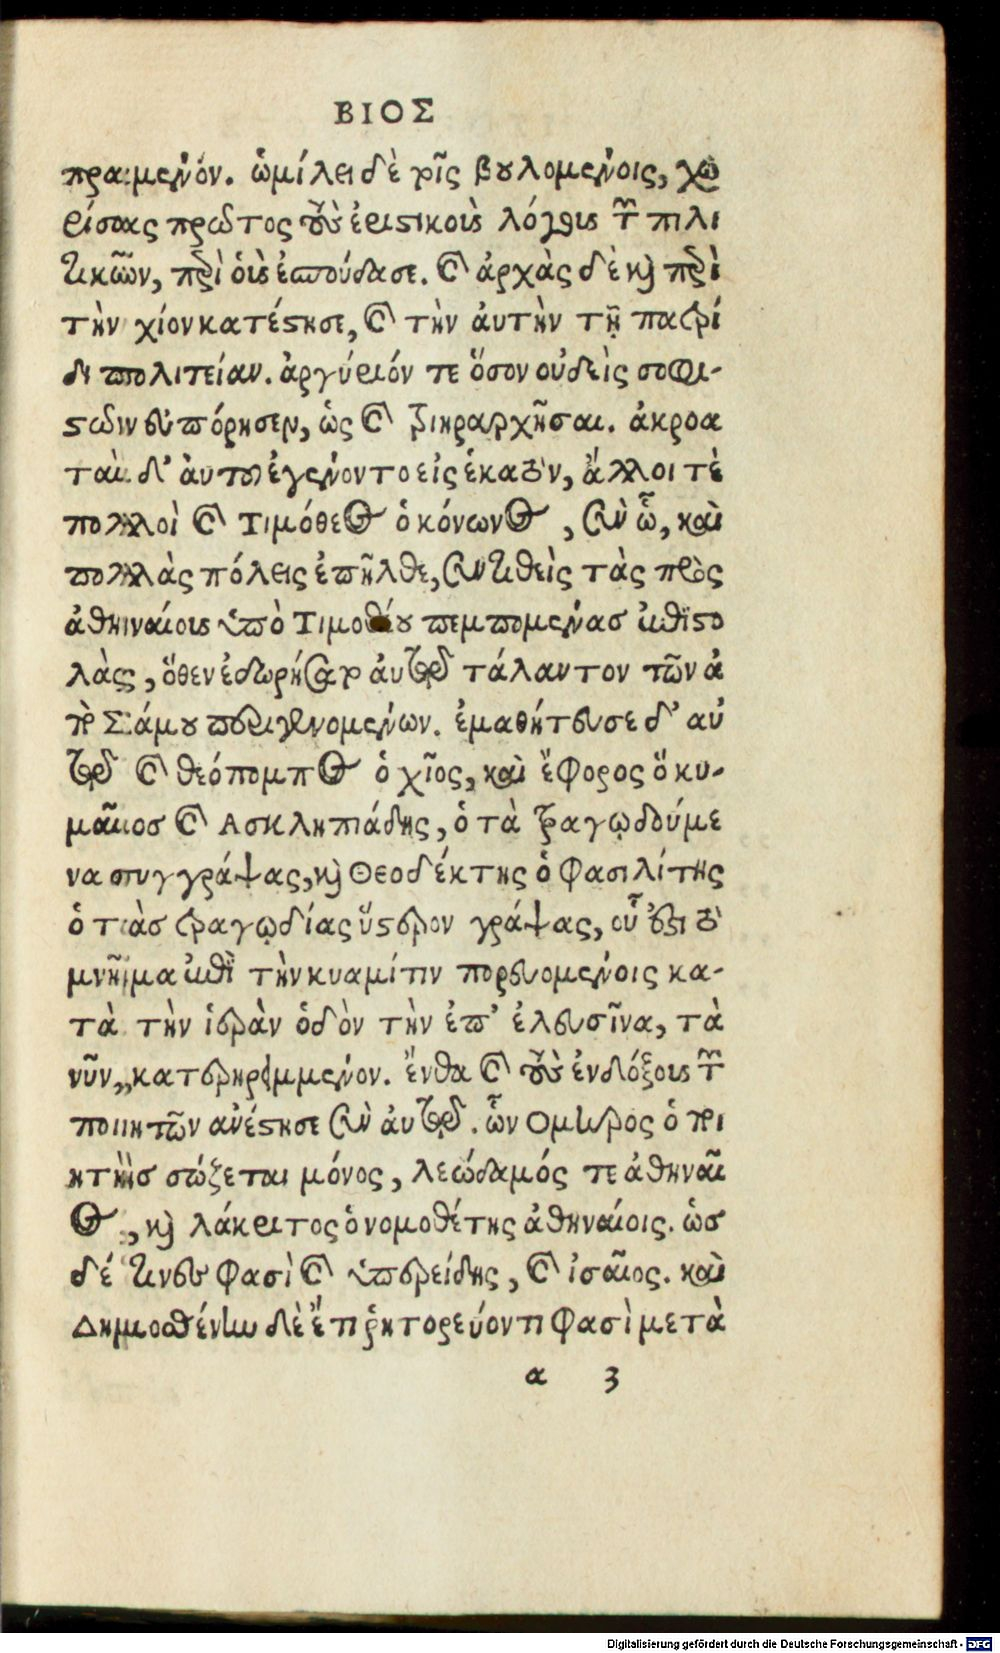 ΒΙΟΣ
πραμμένον. ὡμίλει δὲ τοῖς βουλομένοις, χω
ρίσας πρῶτος τοὺς ἐριστικοὺς λόγους τῶν πολι
τικῶν, περὶ οὓς ἐσπούδασε. καὶ ἀρχὰς δὲ καὶ περὶ
τὴν χίον κατέστησε, καὶ τὴν ἀυτὴν τῇ πατρί
δι πολιτείαν. ἀργύριόν τε ὅσον οὐδεὶς σοφι-
στῶν εὐπόρησεν, ὡς καὶ τριηραρχῆσαι. ἀκροα
ταὶ δ' ἀυτοῦ ἐγένοντο εἰς ἑκατὸν, ἄλλοι τὲ
πολλοὶ καὶ Τιμόθεος ὁ κόνωνος, σὺν ᾧ, καὶ
πολλὰς πόλεις ἐπῆλθε, συντιθεὶς τὰς πρὸς
ἀθηναίους ὑπὸ Τιμοθέου πεμπομένας ἐπιστο
λὰς, ὅθεν ἐδωρήσατο ἀυτῷ τάλαντον τῶν ἀ
πὸ Σάμου περιγενομένων. ἐμαθήτευσε δ' αὐ
τῷ καὶ θεόπομπος ὁ χῖος, καὶ ἔφορος ὅ κυ-
μαῖος καὶ Ασκληπιάδης, ὁ τὰ τραγῳδούμε
να συγγράψας, καὶ Θεοδέκτης ὁ φασιλίτης
ὁ τὰς τραγῳδίας ὕστερον γράψας, οὗ ἐστι τὸ
μνῆμα ἐπὶ τὴν κυαμίτιν πορευομένοις κα-
τὰ τὴν ἱερὰν ὁδὸν τὴν ἐπ' ἐλευσῖνα, τὰ
νῦν,, κατερηριμμένον. ἔνθα καὶ τοὺς ἐνδόξους τῶν
ποιητῶν ἀνέστησε σὺν ἀυτῷ. ὧν Ομηρος ὁ ποι
ητὴς σώζεται μόνος, λεώδαμός τε ἀθηναῖ
ος, καὶ λάκριτος ὁ νομοθέτης ἀθηναίοις. ὡς
δέ τινες φασὶ καὶ ὑπερείδης, καὶ ἰσαῖος. καὶ
Δημοσθένην δὲ ἔτι ῥητορεύοντι φασὶ μετὰ
α 3
Digitalisierung gefördert durch die Deutsche Forschungsgemeinschaft - DFG